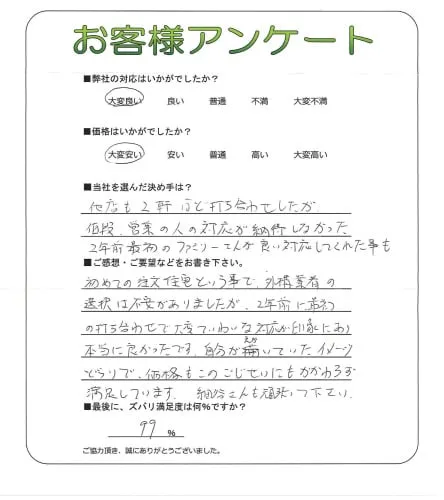 お客様アンケート
■弊社の対応はいかがでしたか?
大変良い 良い 普通 不満 大変不満
■価格はいかがでしたか?
大変安い 安い 普通 高い 大変高い
■当社を選んだ決め手は?
他店も2軒ほど打ち合わせしたが
価段、営業の人の対応が納得しなかった
2年前最初のファミリーさんが良い対応してくれた事も
■ご感想・ご要望などをお書き下さい。
初めての注文住宅という事で、外構業者の
選択は不安がありましたが、2年前に最初
の打ち合わせで大変ていねいな対応が印象にあり
本当に良かったです。自分が描いていたイメージ
どうりで、価格もこのごじせいにもかかわらず
満足しています。 さんも頑張って下さい。
■最後に、ズバリ満足度は何%ですか?
99 %
ご協力頂き、誠にありがとうございました。